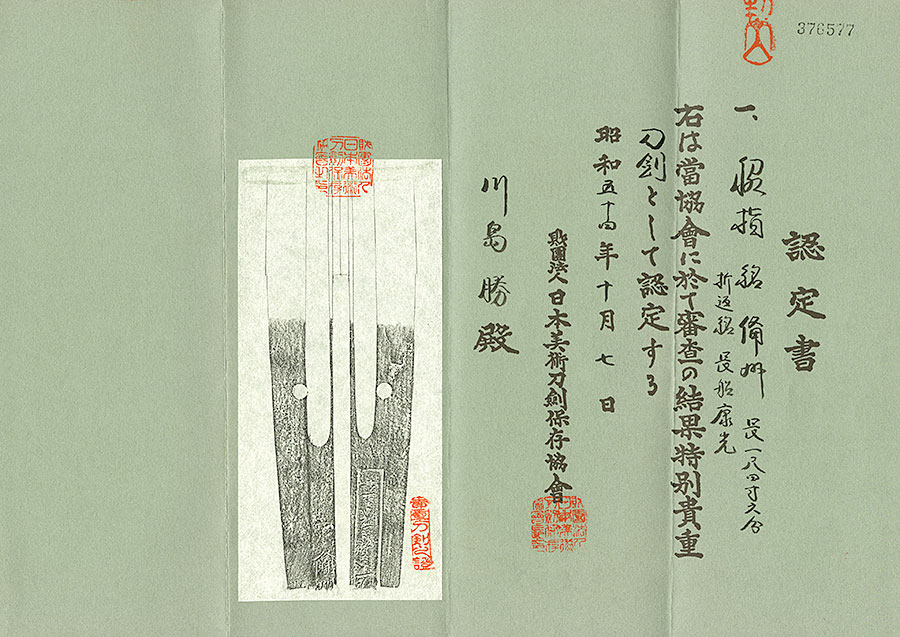 376577
認定書
一、脇指 銘 備州 長一尺四寸六分
折返銘 長船康光
右は當協會に於て審査の結果特別貴重
刀劍として認定する
昭和五十四年十月七日
財團法人日本美術刀劍保存協會
川島勝殿